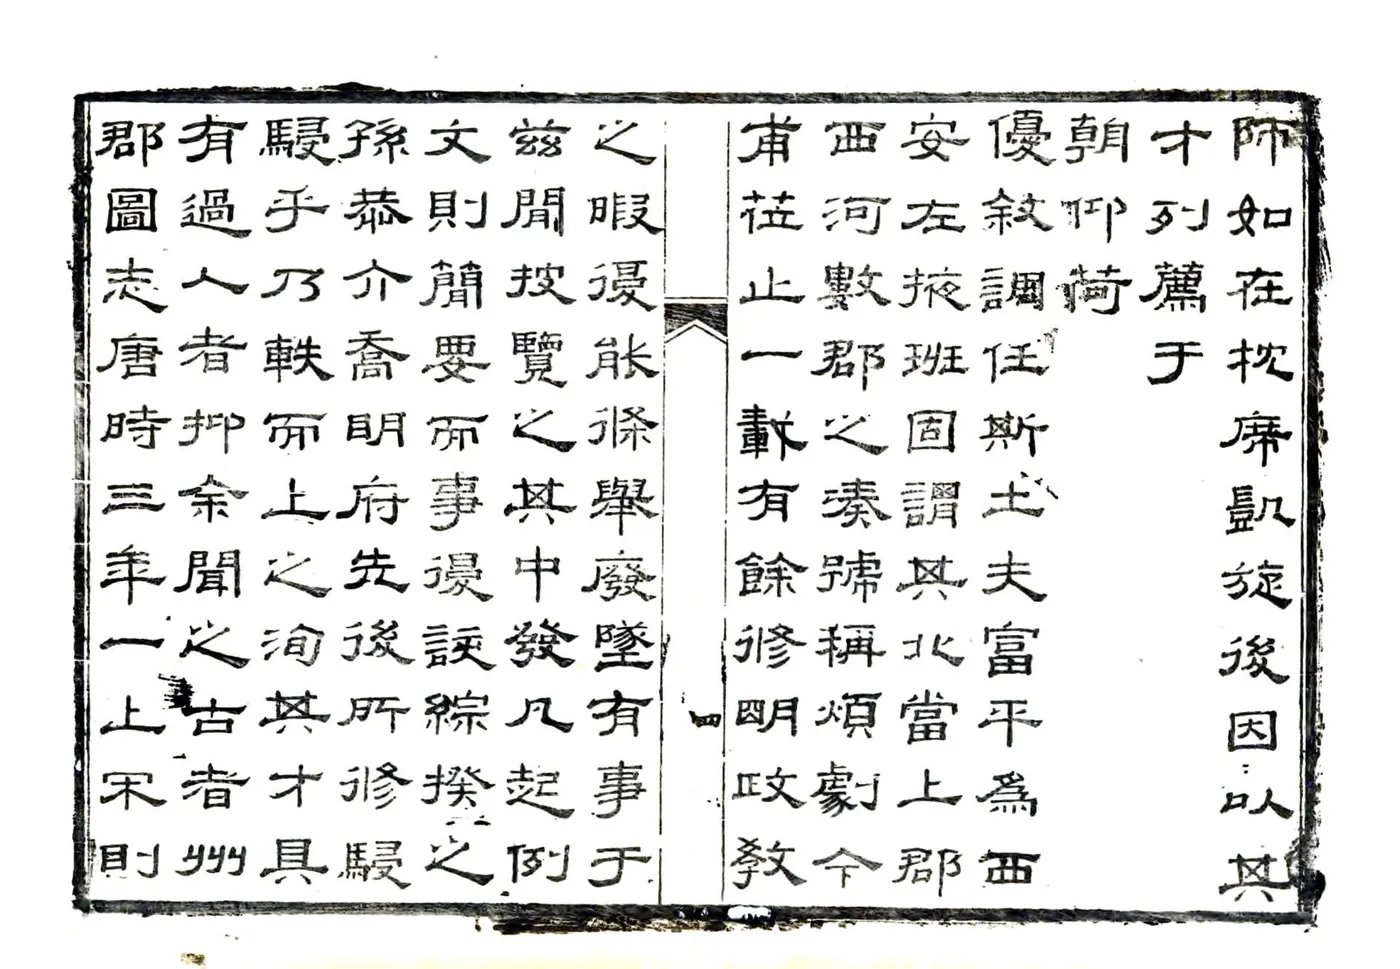 師如在枕席凱旋後因以其
才列薦于
朝仰荷
優敘調任斯土夫富平為西
安左掖班固謂其北當上郡
西河數郡之湊號稱煩劇今
甫莅止一載有餘修明政教
四
之暇復能條舉廢墜有事于
茲閒按覽之其中發凡起例
文則簡要而事復詼綜揆之
孫恭介喬明府先後所修駸
駸乎乃軼而上之洵其才具
有過人者抑余聞之古者州
郡圖志唐時三年一上宋則